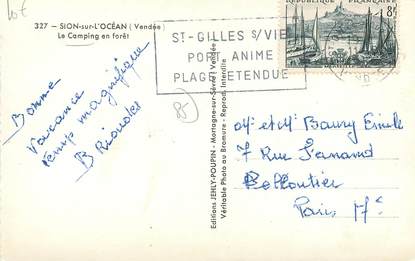 327 - SION-sur-L'OCÉAN (Vendée)
Le Camping en forêt
ST-GILLES S/VIE
PORT ANIME
PLAGE ETENDUE
8F
Bonne
Vacance
temp magnifique
B
Editions JEHLY-POUPIN - Mortagne-sur-Sèvre (Vendée)
Véritable Photo au Bromure - Reprod. Interdite
Mr et Mr Baury Emile
7 Rue Fernand
Pelloutier
Paris